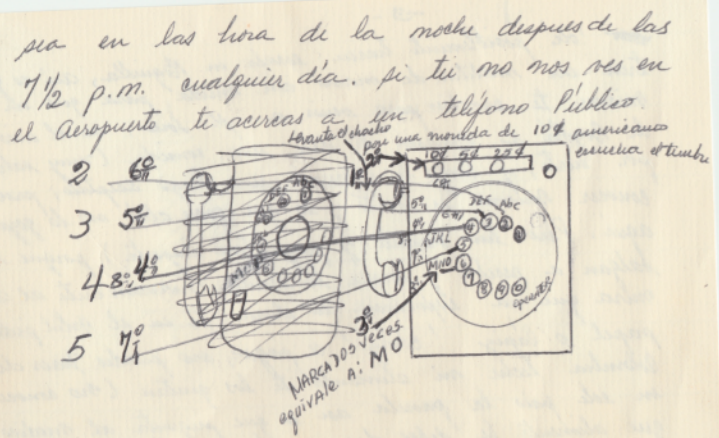 sea en las hora de la noche despues de las
7 1/2 p.m. cualquier día. si tú no nos ves en
el Aeropuerto te acercas a un teléfono Público
Levanta el
pon una moneda de 10¢ americano
escucha el timbre
1º 2º
10¢ 5¢ 25¢
2 6º
3 5º
4 8º 4º
5 7º
DEF ABC
GHI
JKL
MNO
OPERATOR
3º
MARCA DOS VECES
equivale a: MO